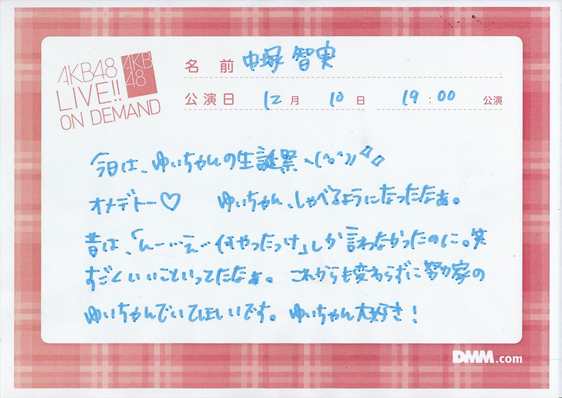 AKB48
LIVE!!
ON DEMAND
AKB
48
名前 中塚 智実
公演日 12月 10日 19:00 公演
今日は、ゆいちゃんの生誕祭ヽ(^o^)丿
オメデトー♡ ゆいちゃん、しゃべるようになったなぁ。
昔は、「んー…え…何やったっけ」しか言わなかったのに。笑
すごくいいこといってたなぁ。これからも変わらずに努力家の
ゆいちゃんでいてほしいです。ゆいちゃん大好き!
DMM.com